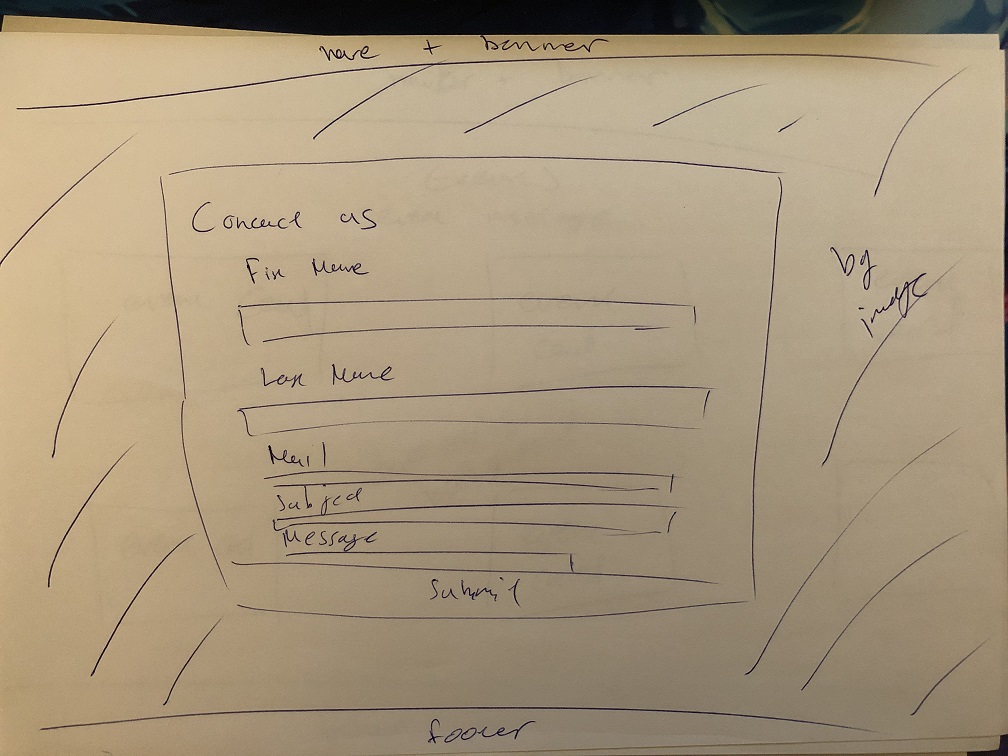 nave + banner
Contact us
Firs Name
Last Name
Mail
Subject
Message
Submit
bg
image
footer